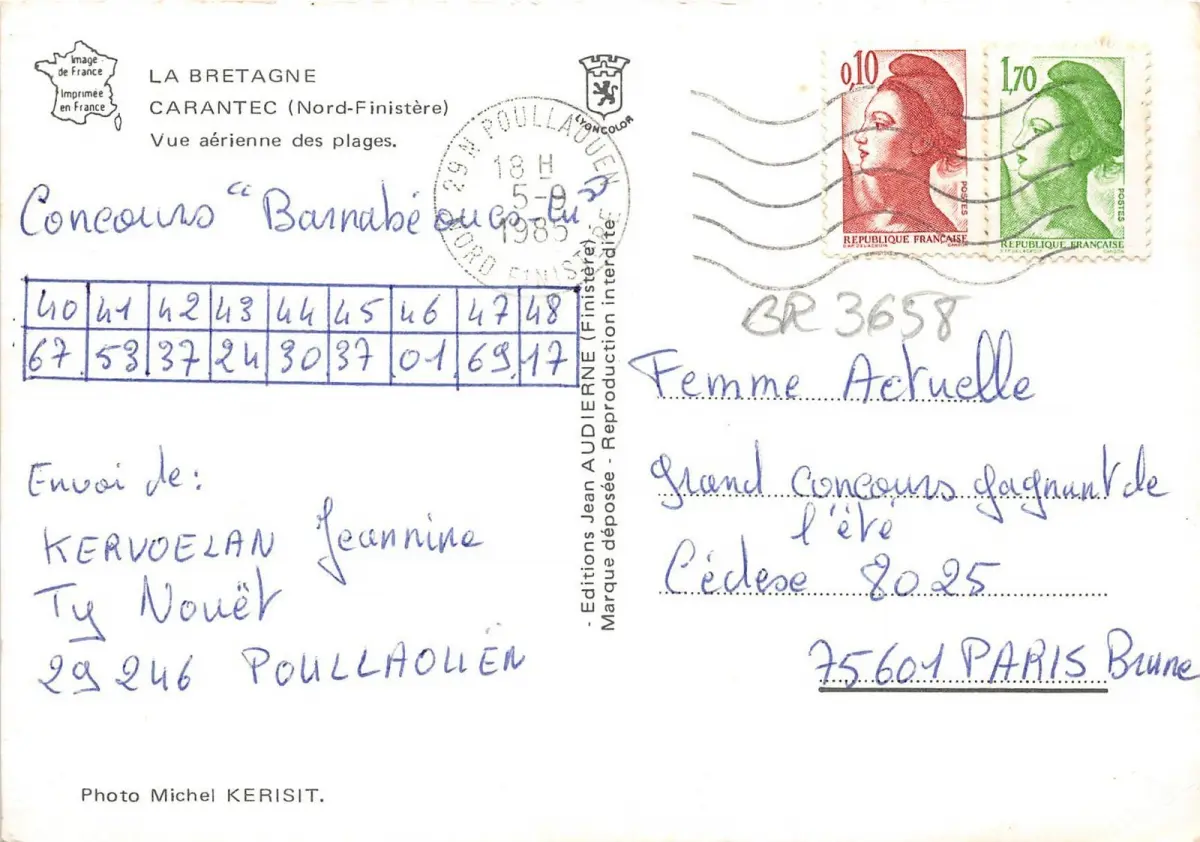 Image
de France
Imprimée
en France
LA BRETAGNE
CARANTEC (Nord-Finistère)
Vue aérienne des plages.
LYONCOLOR
29 N POULLAOUEN
18 H
5-9
1985
NORD FINISTERE
0,10
POSTES
RÉPUBLIQUE FRANÇAISE
1,70
POSTES
RÉPUBLIQUE FRANÇAISE
Concours "Barnabé
40 41 42 43 44 45 46 47 48
67 53 37 24 30 37 01 69 17
Envoi de:
KERVOELAN Jeannine
Ty Nouët
29 246 POULLAOUËN
Photo Michel KERISIT.
- Editions Jean AUDIERNE (Finistère) -
Marque déposée - Reproduction interdite.
BR 3658
Femme Actuelle
Grand concours gagnant de
l'été
Cédese 8025
75601 PARIS Brune